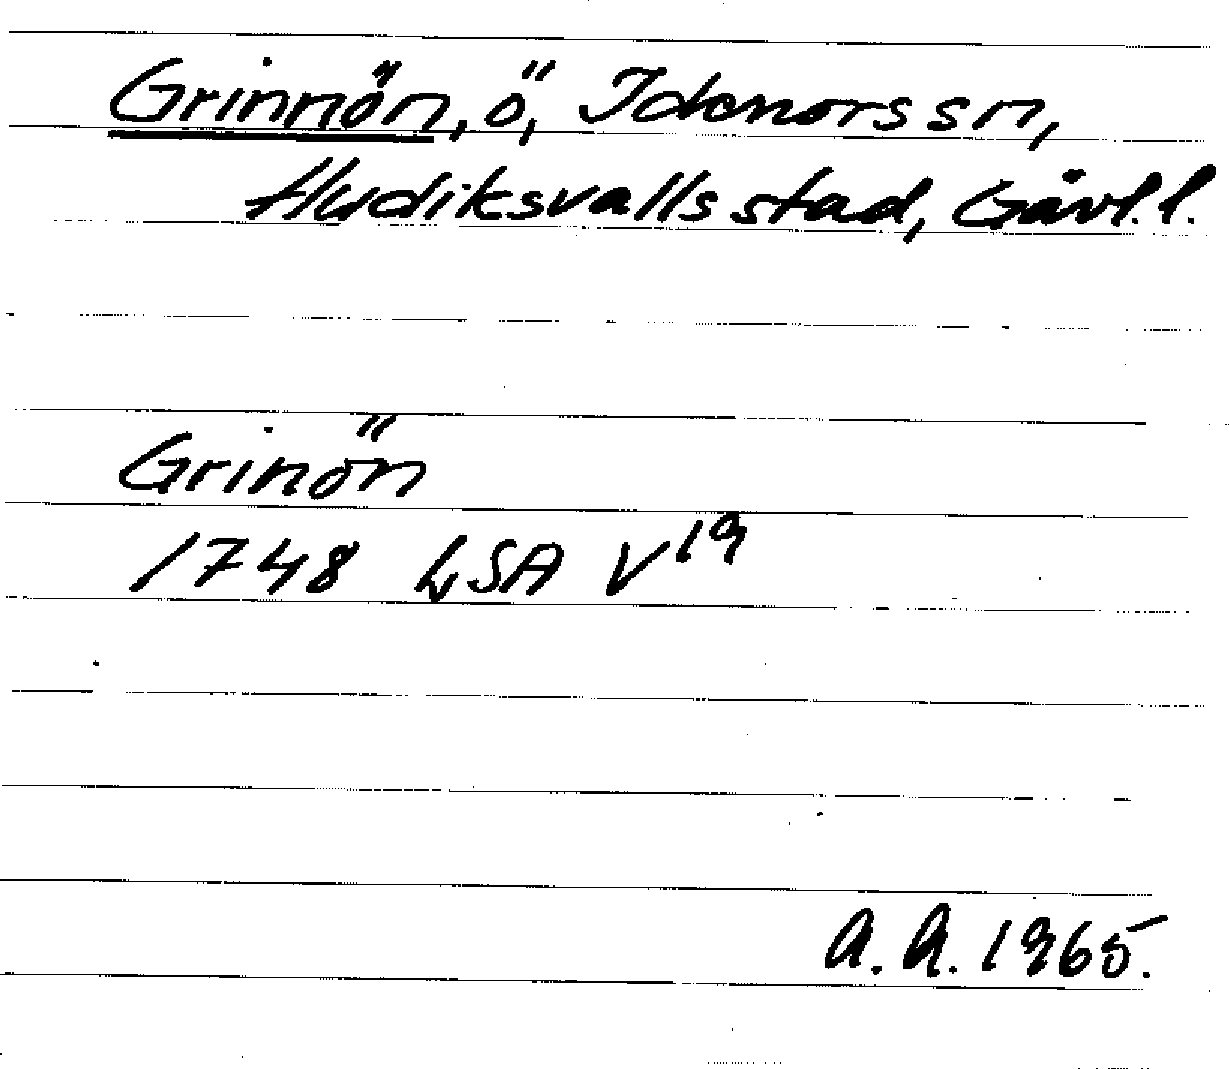 Grinnön, ö, Idenors sn,
Hudiksvalls stad, Gävl.l.
Grinön
1748 LSA V19
A.A. 1965.